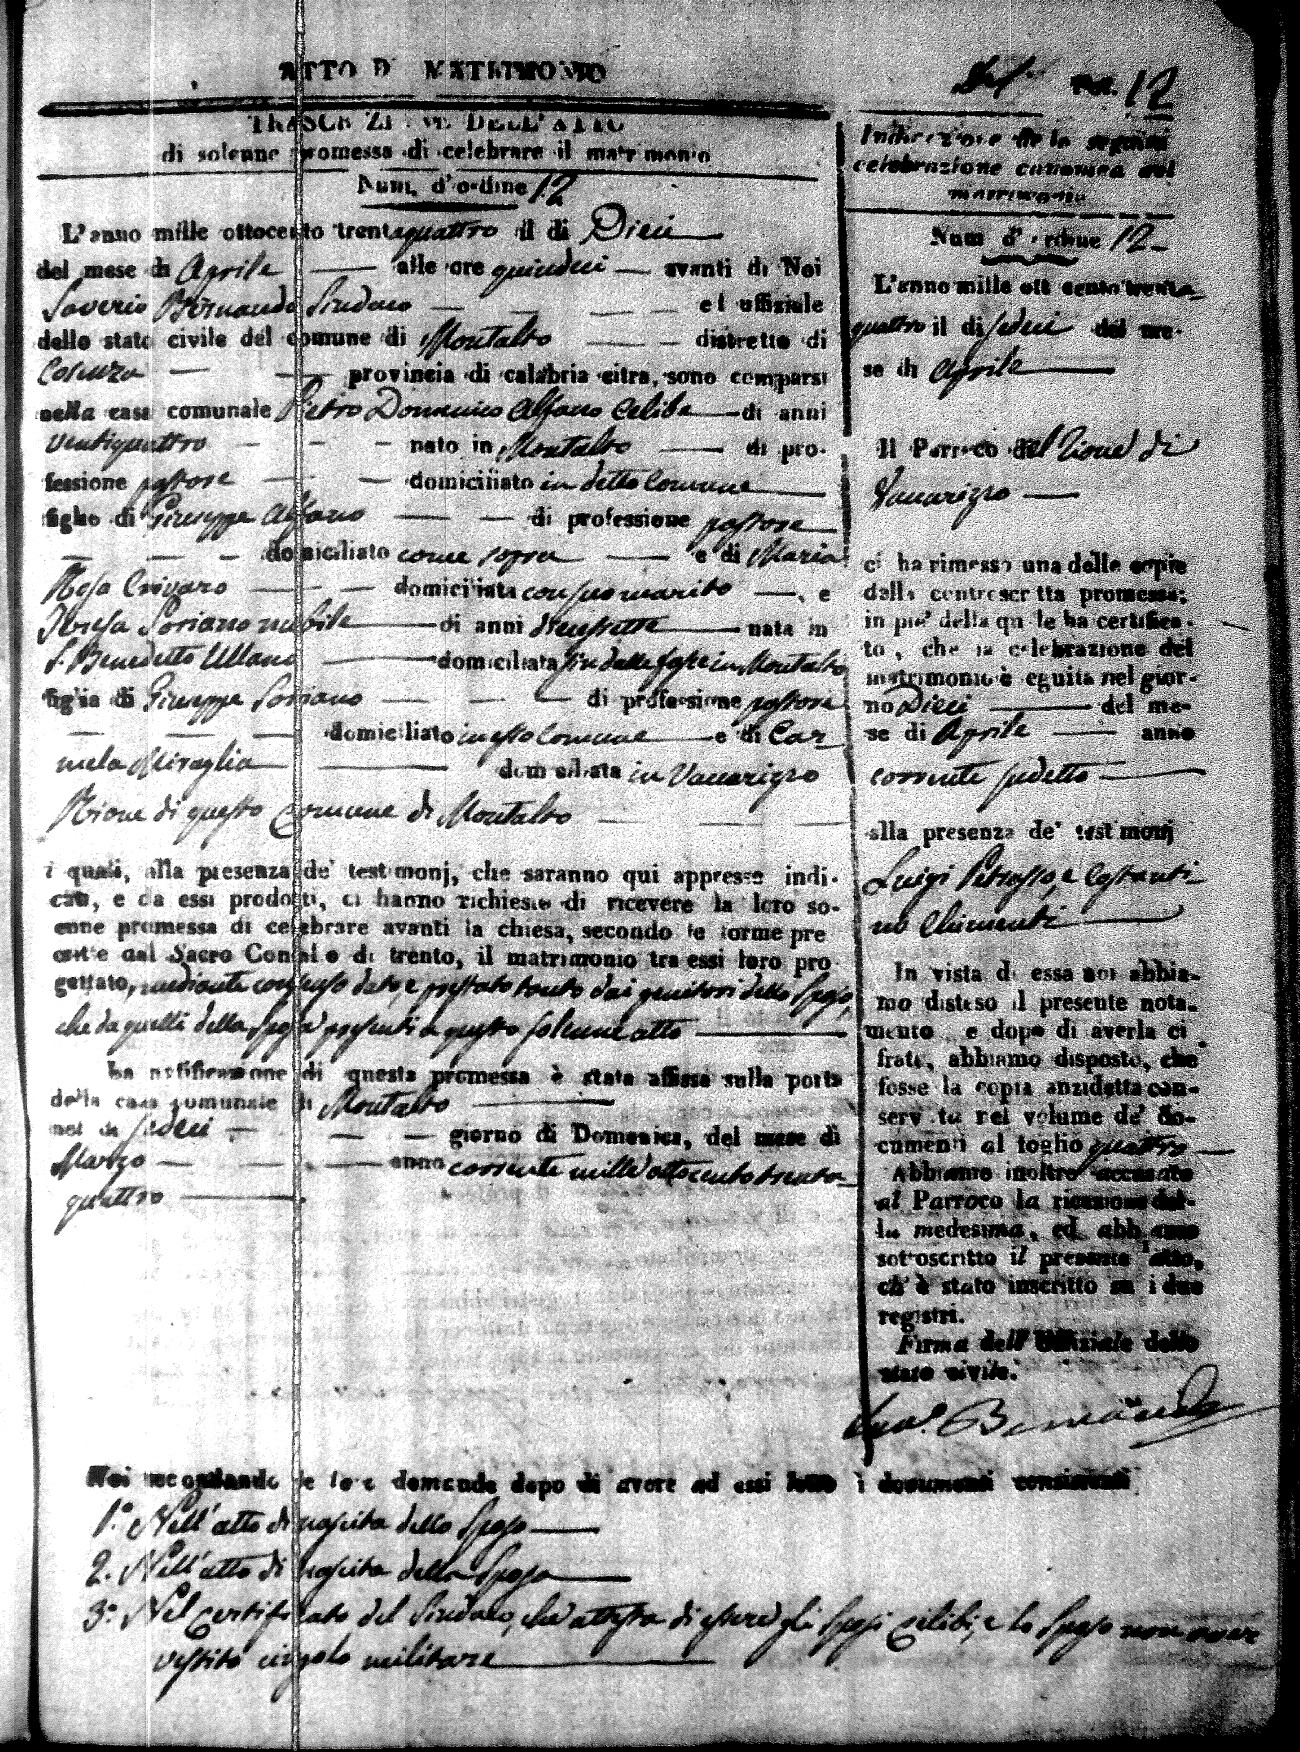 ATTO DI MATRIMONIO
TRASCRIZIONE DELL'ATTO
di solenne promessa di celebrare il matrimonio
Num. d'ordine 12
L'anno mille ottocento trentaquattro il di Dieci
del mese di Aprile alle ore quindeci avanti di Noi
Saverio Bernaudo Sindaco ed uffiziale
dello stato civile del comune di Montalto distretto di
Cosenza provincia di calabria citra, sono comparsi
nella casa comunale Pietro Domenico Alfano Celibe di anni
ventiquattro nato in Montalto di pro-
fessione pastore domiciliato in detto Comune
figlio di Giuseppe Alfano di professione pastore
domiciliato come sopra e di Maria
Rosa Crivaro domiciliata con suo marito, e
Teresa Soriano nubile di anni diecisette nata in
S. Benedetto Ullano domiciliata sin dalle fasce in Montalto
figlia di Giuseppe Soriano di professione pastore
domiciliato in esso Comune e di Car
mela Miraglia domiciliata in Vaccarizzo
Rione di questo Comune di Montalto
i quali, alla presenza de' testimonj, che saranno qui appresso indi-
cati, e da essi prodotti, ci hanno richiesto di ricevere la loro so-
enne promessa di celebrare avanti la chiesa, secondo le forme pre
critte dal Sacro Concilio di trento, il matrimonio tra essi loro pro-
gettato, mediante consenso dato, e prestato tanto dai genitori dello Sposo,
che da quelli della Sposa presenti a questo solenne atto
La notificazione di questa promessa è stata affissa sulla porta
della casa comunale di Montalto
nel di sedeci giorno di Domenica, del mese di
Marzo anno corrente mille ottocento trenta-
quattro
Noi secondando le loro domande dopo di avere ad essi letto i documenti consistenti
1.° Nell'atto di nascita dello Sposo
2. Nell'atto di nascita della Sposa
3.° Nel Certificato del Sindaco, che attesta di essere gli Sposi celibi, e lo Sposo non aver
vestito cingolo militare
12
Indicazione della seguita
celebrazione canonica del
matrimonio
Num d'ordine 12
L'anno mille ottocento trenta
quattro il di sedeci del me-
se di Aprile
Il Parroco del Rione di
Vaccarizzo
ci ha rimesso una delle copie
della controscritta promessa;
in piè della quale ha certifica-
to, che la celebrazione del
matrimonio è seguita nel gior-
no Dieci del me-
se di Aprile anno
corrente sudetto
alla presenza de' testimonj
Luigi Petrasso, e Costanti
no Chimenti
In vista di essa noi abbia-
mo disteso il presente nota-
mento e dopo di averla ci
frata, abbiamo disposto, che
fosse la copia anzidetta con-
servata nel volume de' do-
cumenti al foglio quattro
Abbiamo inoltre accusato
al Parroco la ricezione del-
la medesima, ed abbiamo
sottoscritto il presente atto,
ch'è stato inscritto su i due
registri.
Firma dell'Uffiziale dello
stato civile.
Bernaudo